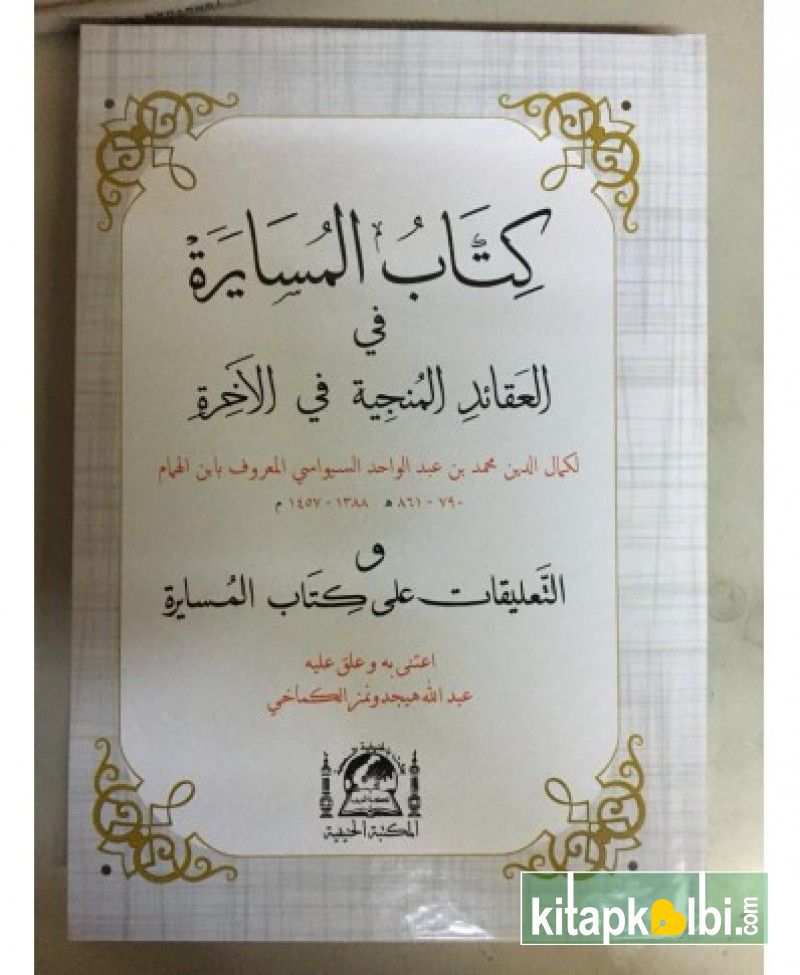 كِتَابُ المُسَايَرَةْ
في
العَقَائدِ المُنجِية في الآخَرِة
لكمال الدين محمد بن عبد الواحد السيواسي المعروف بابن الهمام
٧٩٠ - ٨٦١ ه ١٣٨٨ - ١٤٥٧ م
و
التَّعليقات على كِتَاب المُسايرة
اعتنى به وعلق عليه
عبد الله هيجدونمز الكماخي
المكتبة الحنيفية
kitapkalbi.com